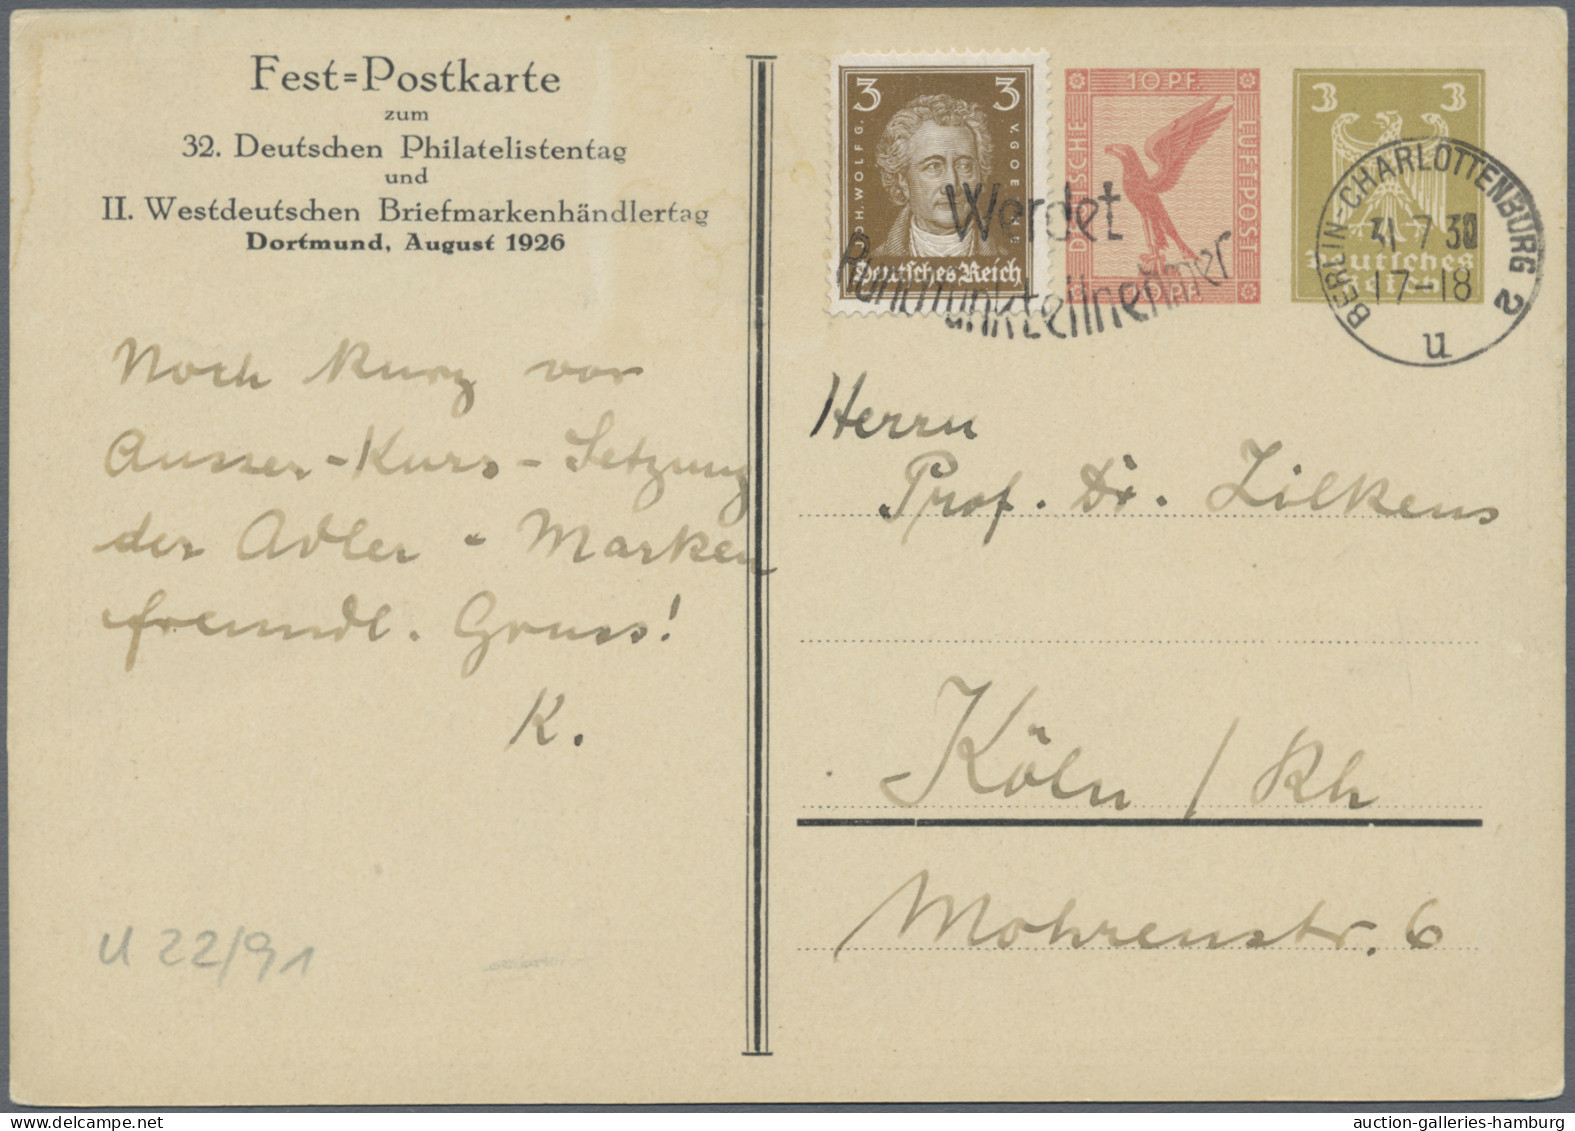 Fest=Postkarte
zum
32. Deutschen Philatelistentag
und
II. Westdeutschen Briefmarkenhändlertag
Dortmund, August 1926
3 3
JOH. WOLFG. V. GOETHE
Deutsches Reich
10 PF.
DEUTSCHE LUFTPOST
10 PF.
3 3
Deutsches
Reich
Werdet
Rundfunkteilnehmer
BERLIN-CHARLOTTENBURG 2
31 7 30
17-18
u
Noch kurz vor
Ausser-Kurs-Setzung
der Adler-Marken
freundl. Gruss!
K.
Herrn
Prof. Dr. Zilkens
Köln / Rh
Mohrenstr. 6
U 22/91
auction-galleries-hamburg